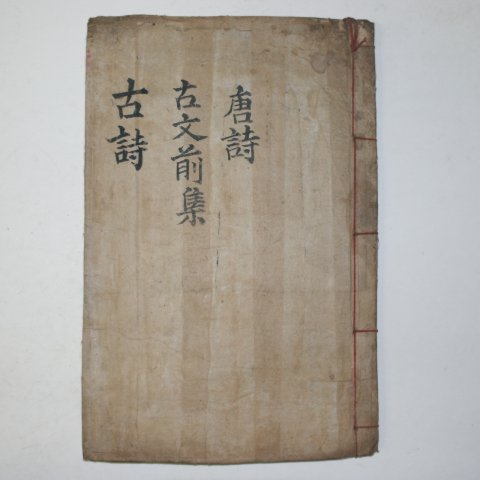 唐詩
古文前集
古詩